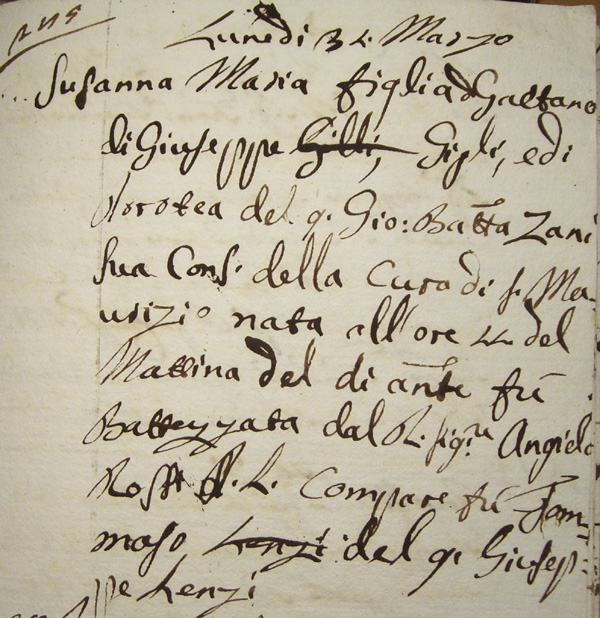 Lunedi 31. Marzo
Susanna Maria figlia di Gaetano
di Giuseppe Gilli, Gigli, e di
Dorotea del q. Gio: Batta Zani
sua Cons. della Cura di S. Ma-
urizio nata all'ore 11. del
Mattina del di ante fù
Battezzata dal R. Sig.re Angielo
Rossi Compare fù Tom-
maso Lenzi del q. Giusep-
pe Lenzi